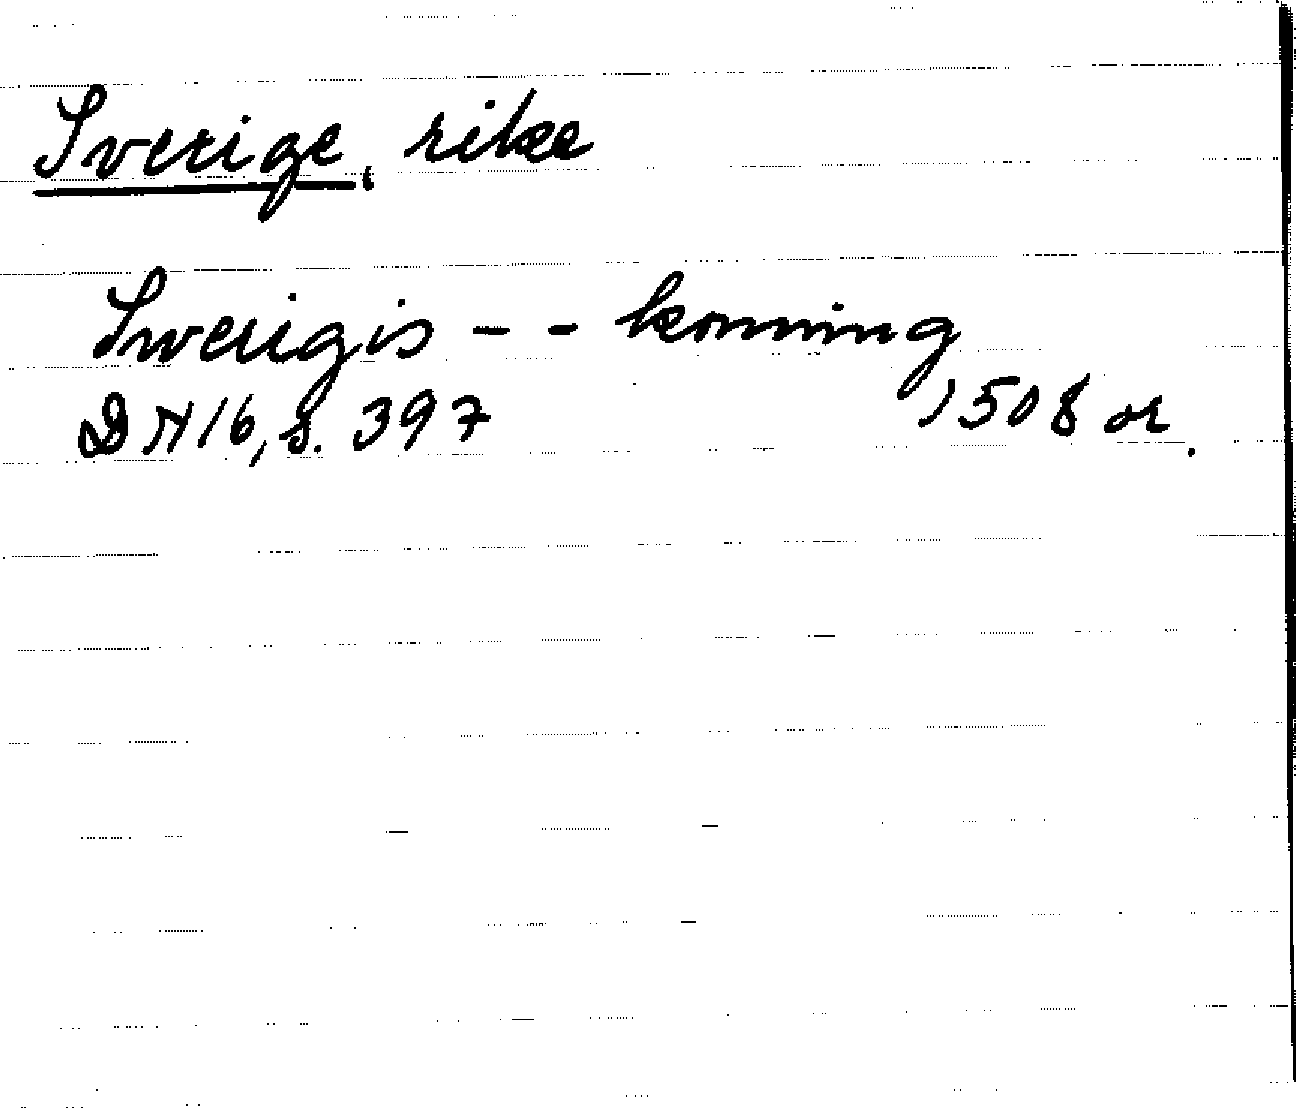 Sverige, rike
Swerigis - - konning
DN 16, s. 397 1508 or.